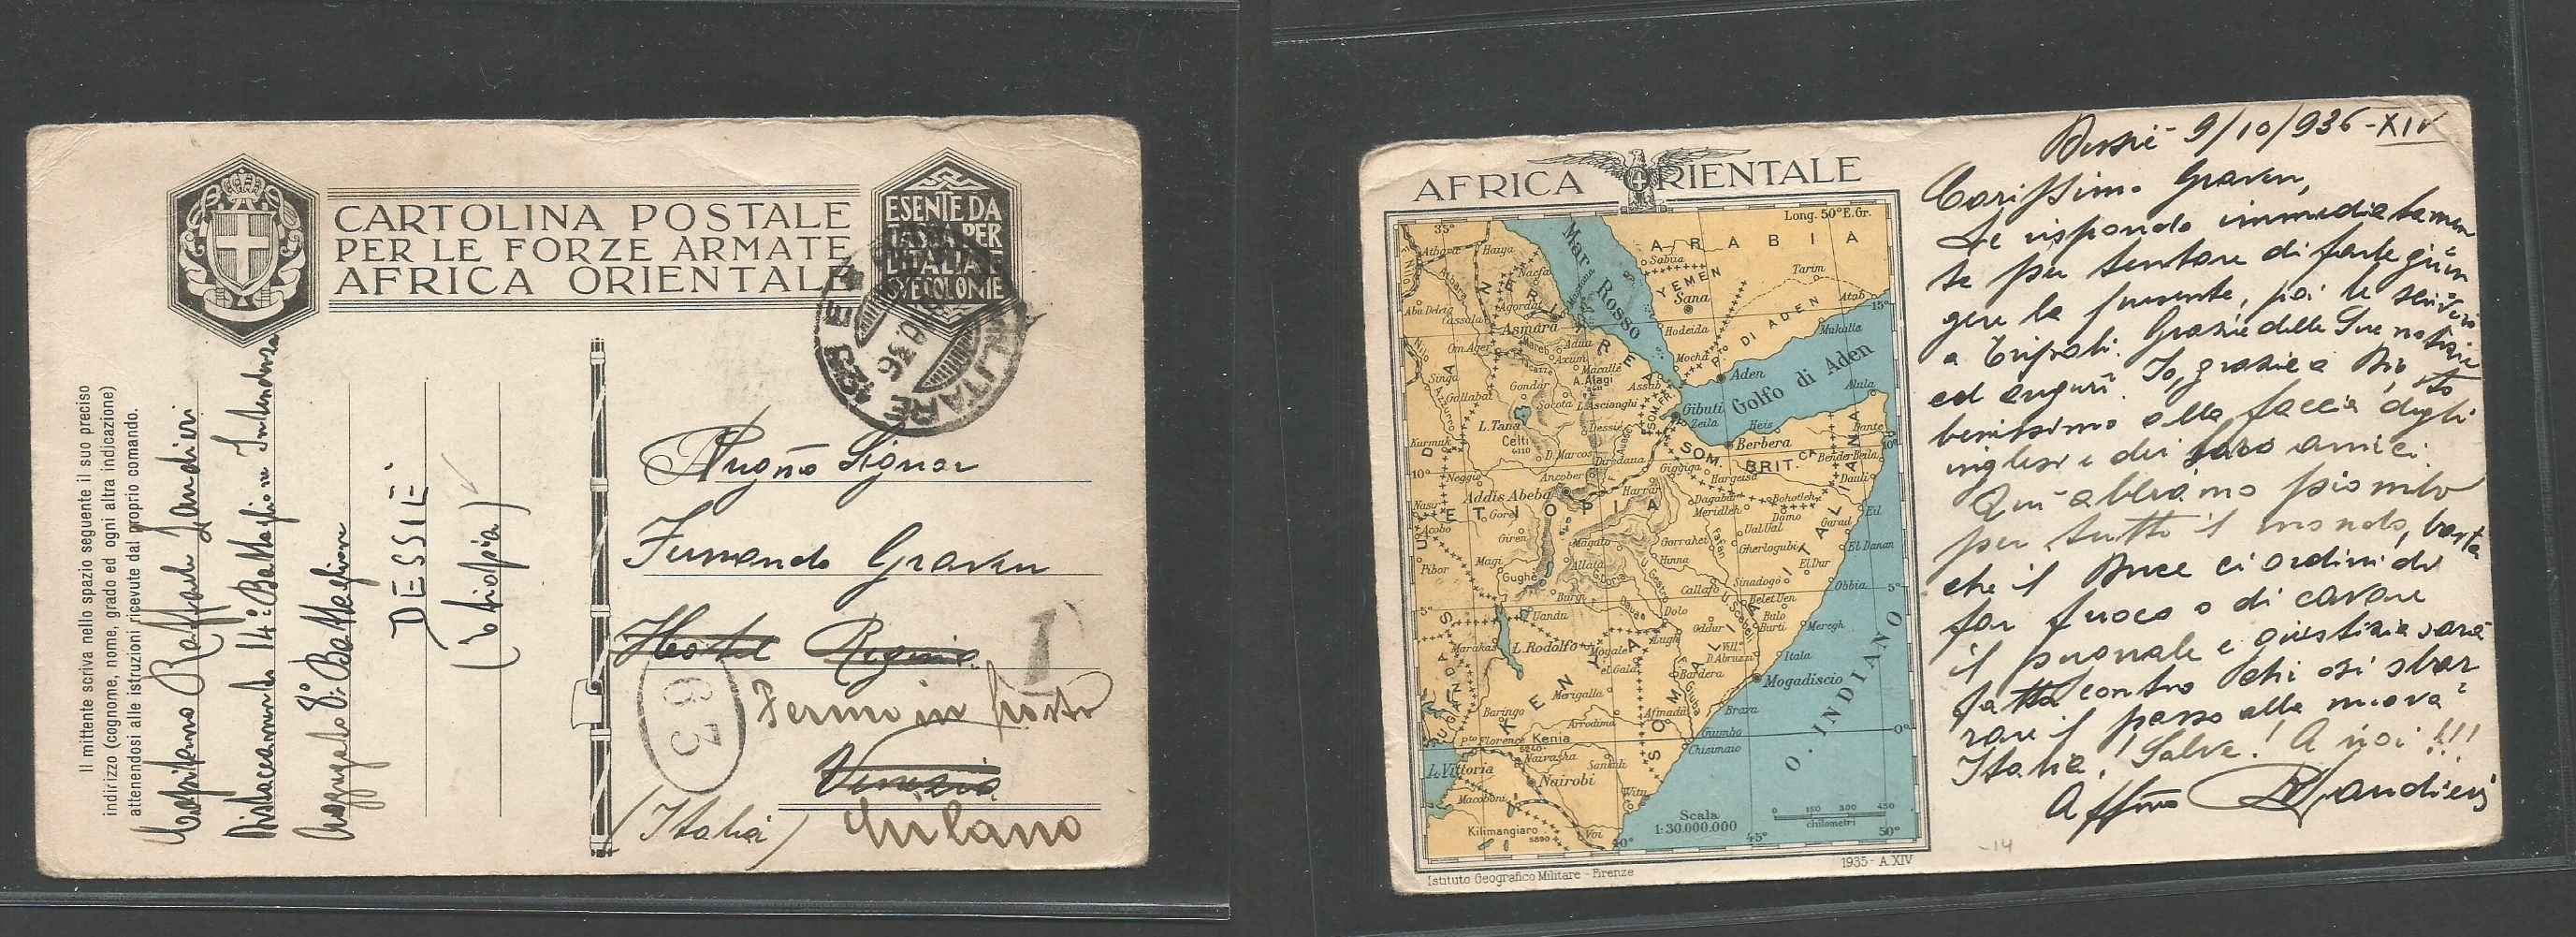 CARTOLINA POSTALE
PER LE FORZE ARMATE
AFRICA ORIENTALE
ESENTE DA
TASSA PER
L'ITALIA E
LE COLONIE
MILITARE
Il mittente scriva nello spazio seguente il suo preciso
indirizzo (cognome, nome, grado ed ogni altra indicazione)
attenendosi alle istruzioni ricevute dal proprio comando.
Capitano Raffaele Landieri
Distaccamento 14° Battaglione
8° Battaglione
DESSIÉ
(Etiopia)
Signor
Graven
Hotel Regina
Fermo in posta
Venezia
Milano
(Italia)
63
1
AFRICA ORIENTALE
Long. 50° E. Gr.
35°
ARABIA
Mar Rosso
YEMEN
Sabua
Sana
Tarim
Atab
15°
Hodeida
Mocha
DI ADEN
Mukalla
Aden
Golfo di Aden
Alula
Atbara
Haiya
Nacfa
Agordat
Cassala
Asmara
Massaua
ERITREA
Om Ager
Adua
Axum
Macallè
A. Alagi
Assab
Singa
Gondar
Gallabat
Socota
L. Ascianghi
L. Tana
Dessiè
Gibuti
Zeila
Heis
Berbera
Dante
10°
Bender Beila
SOM. BRIT.
Kurmuk
Celti
D. Marcos
Diredaua
Giggiga
Hargeisa
Dauli
Neggio
Ancober
Addis Abeba
Harrar
Dagabur
Bohotleh
Meridleh
Domo
Eil
Garad
ETIOPIA
Gore
Ual Ual
Gherlogubi
El Danan
Acobo
Giren
Magalo
Gorrahei
Hinna
El Dur
Pibor
Magi
Gughè
Allata
Callafo
Sinadogò
Obbia
5°
Burgi
Dolo
Belet Uen
Bulo Burti
Meregh
Uandu
Oddur
Lugh
L. Rodolfo
Moyale
el Gala
Vill. D. Abruzzi
Itala
Bardera
Mogadiscio
KENYA
Merigalla
Baringo
Arrodima
Afmadù
Brava
Giumbo
Chisimaio
0°
Pto Florence
Kenia
5240
Naivasha
Sankuli
L. Vittoria
Nairobi
Macoboni
Witu
Kilimangiaro
5890
Voi
SOMALIA ITALIANA
O. INDIANO
Scala
1:30.000.000
0 150 300 450
chilometri
40°
45°
50°
Istituto Geografico Militare - Firenze
1935 - A. XIV
Dessiè 9/10/936 - XIV
Carissimo Graven,
Le rispondo immediatamen
te per tentare di farle giun
gere la presente, poi le scriverò
a Tripoli. Grazie delle Sue notizie
ed auguri. Io, grazie a Dio, sto
benissimo alla faccia degli
inglesi e dei loro amici.
Qui abbiamo piombo
per tutto il mondo, basta
che il Duce ci ordini di
far fuoco o di cavare
il pugnale e giustizia sarà
fatta contro chi osi sbar
rare il passo alla nuova
Italia! Salve! A noi!!!
Aff/mo Landieri
-14